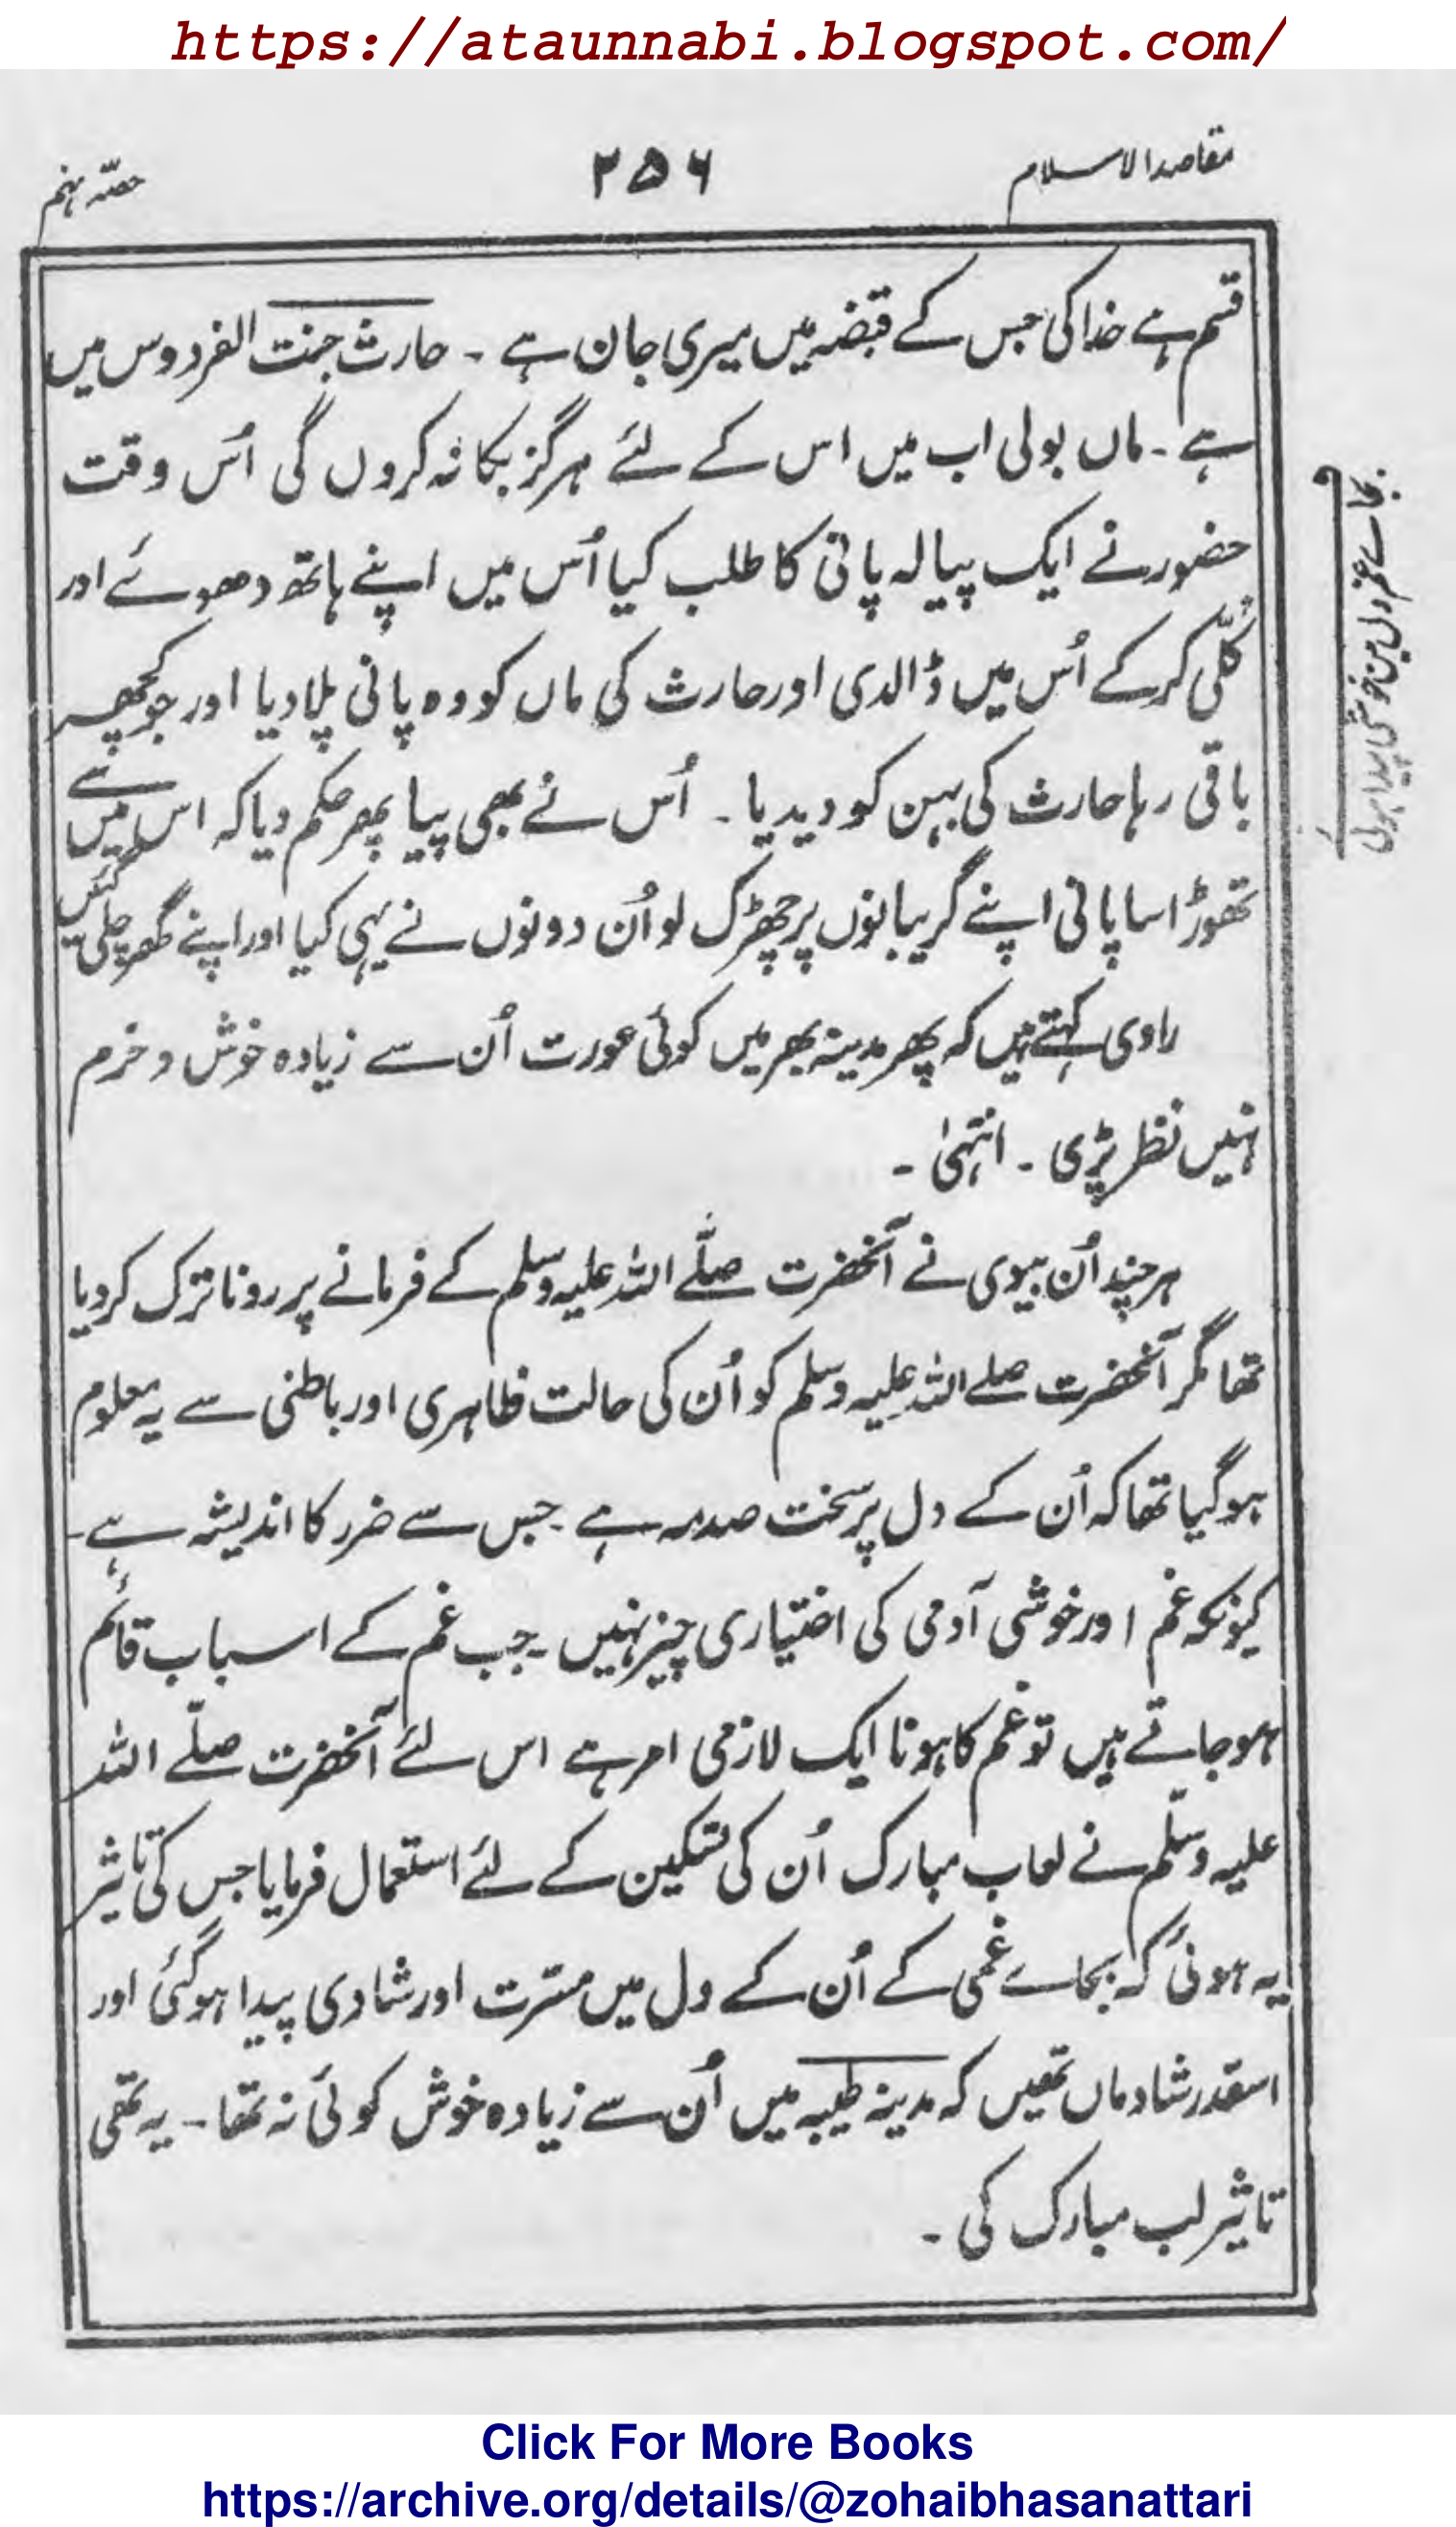 https://ataunnabi.blogspot.com/
مقاصد الاسلام
۲۵۶
حصّہ نہم
قسم ہے خدا کی جس کے قبضہ میں میری جان ہے ۔ حارث جنت الفردوس میں
ہے ۔ ماں بولی اب میں اس کے لئے ہرگز بکا نہ کروں گی اُس وقت
حضور نے ایک پیالہ پانی کا طلب کیا اُس میں اپنے ہاتھ دھوئے اور
کُلّی کر کے اُس میں ڈالدی اور حارث کی ماں کو وہ پانی پلا دیا اور جو کچھ
باقی رہا حارث کی بہن کو دیدیا ۔ اُس نے بھی پیا پھر حکم دیا کہ اس میں سے
تھوڑا سا پانی اپنے گریبانوں پر چھڑک لو اُن دونوں نے یہی کیا اور اپنے گھر چلی گئیں
راوی کہتے ہیں کہ پھر مدینہ بھر میں کوئی عورت اُن سے زیادہ خوش و خرم
نہیں نظر پڑی ۔ انتہیٰ ۔
ہر چند اُن بیوی نے آنحضرت صلّے اللہ علیہ وسلم کے فرمانے پر رونا ترک کر دیا
تھا مگر آنحضرت صلے اللہ علیہ وسلم کو اُن کی حالت ظاہری اور باطنی سے یہ معلوم
ہو گیا تھا کہ اُن کے دل پر سخت صدمہ ہے ۔ جس سے ضرر کا اندیشہ ہے ۔
کیونکہ غم اور خوشی آدمی کی اختیاری چیز نہیں ۔ جب غم کے اسباب قائم
ہو جاتے ہیں تو غم کا ہونا ایک لازمی امر ہے اس لئے آنحضرت صلّے اللہ
علیہ وسلّم نے لعاب مبارک اُن کی تسکین کے لئے استعمال فرمایا جس کی تاثیر
یہ ہوئی کہ بجاے غمی کے اُن کے دل میں مسرّت اور شادی پیدا ہو گئی اور
اسقدر شادماں تھیں کہ مدینہ طیبہ میں اُن سے زیادہ خوش کوئی نہ تھا ۔ یہ تھی
تاثیر لب مبارک کی ۔
بجاے غم دل میں خوشی پیدا ہوئی
Click For More Books
https://archive.org/details/@zohaibhasanattari